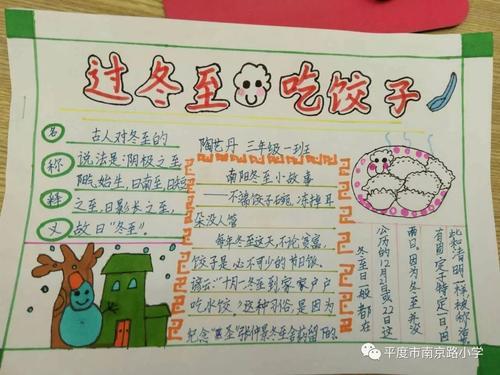 过冬至吃饺子
名称释义
古人对冬至的
说法是：阴极之至，
阳气始生，日南至，日短
之至，日影长之至，
故曰“冬至”。
陶艺丹 三年级一班
南阳冬至小故事
——不端饺子碗，冻掉耳
朵没人管
每年冬至这天，不论贫富，
饺子是必不可少的节日饭。
谚云：“十月一，冬至到，家家户户
吃水饺。”这种习俗，是因为
纪念“医圣”张仲景冬至舍药留下的。
冬至日一般都在
公历的12月21或22日这
两日。因为冬至并没
有固定于特定一日，因
此和清明一样，被称
平度市南京路小学